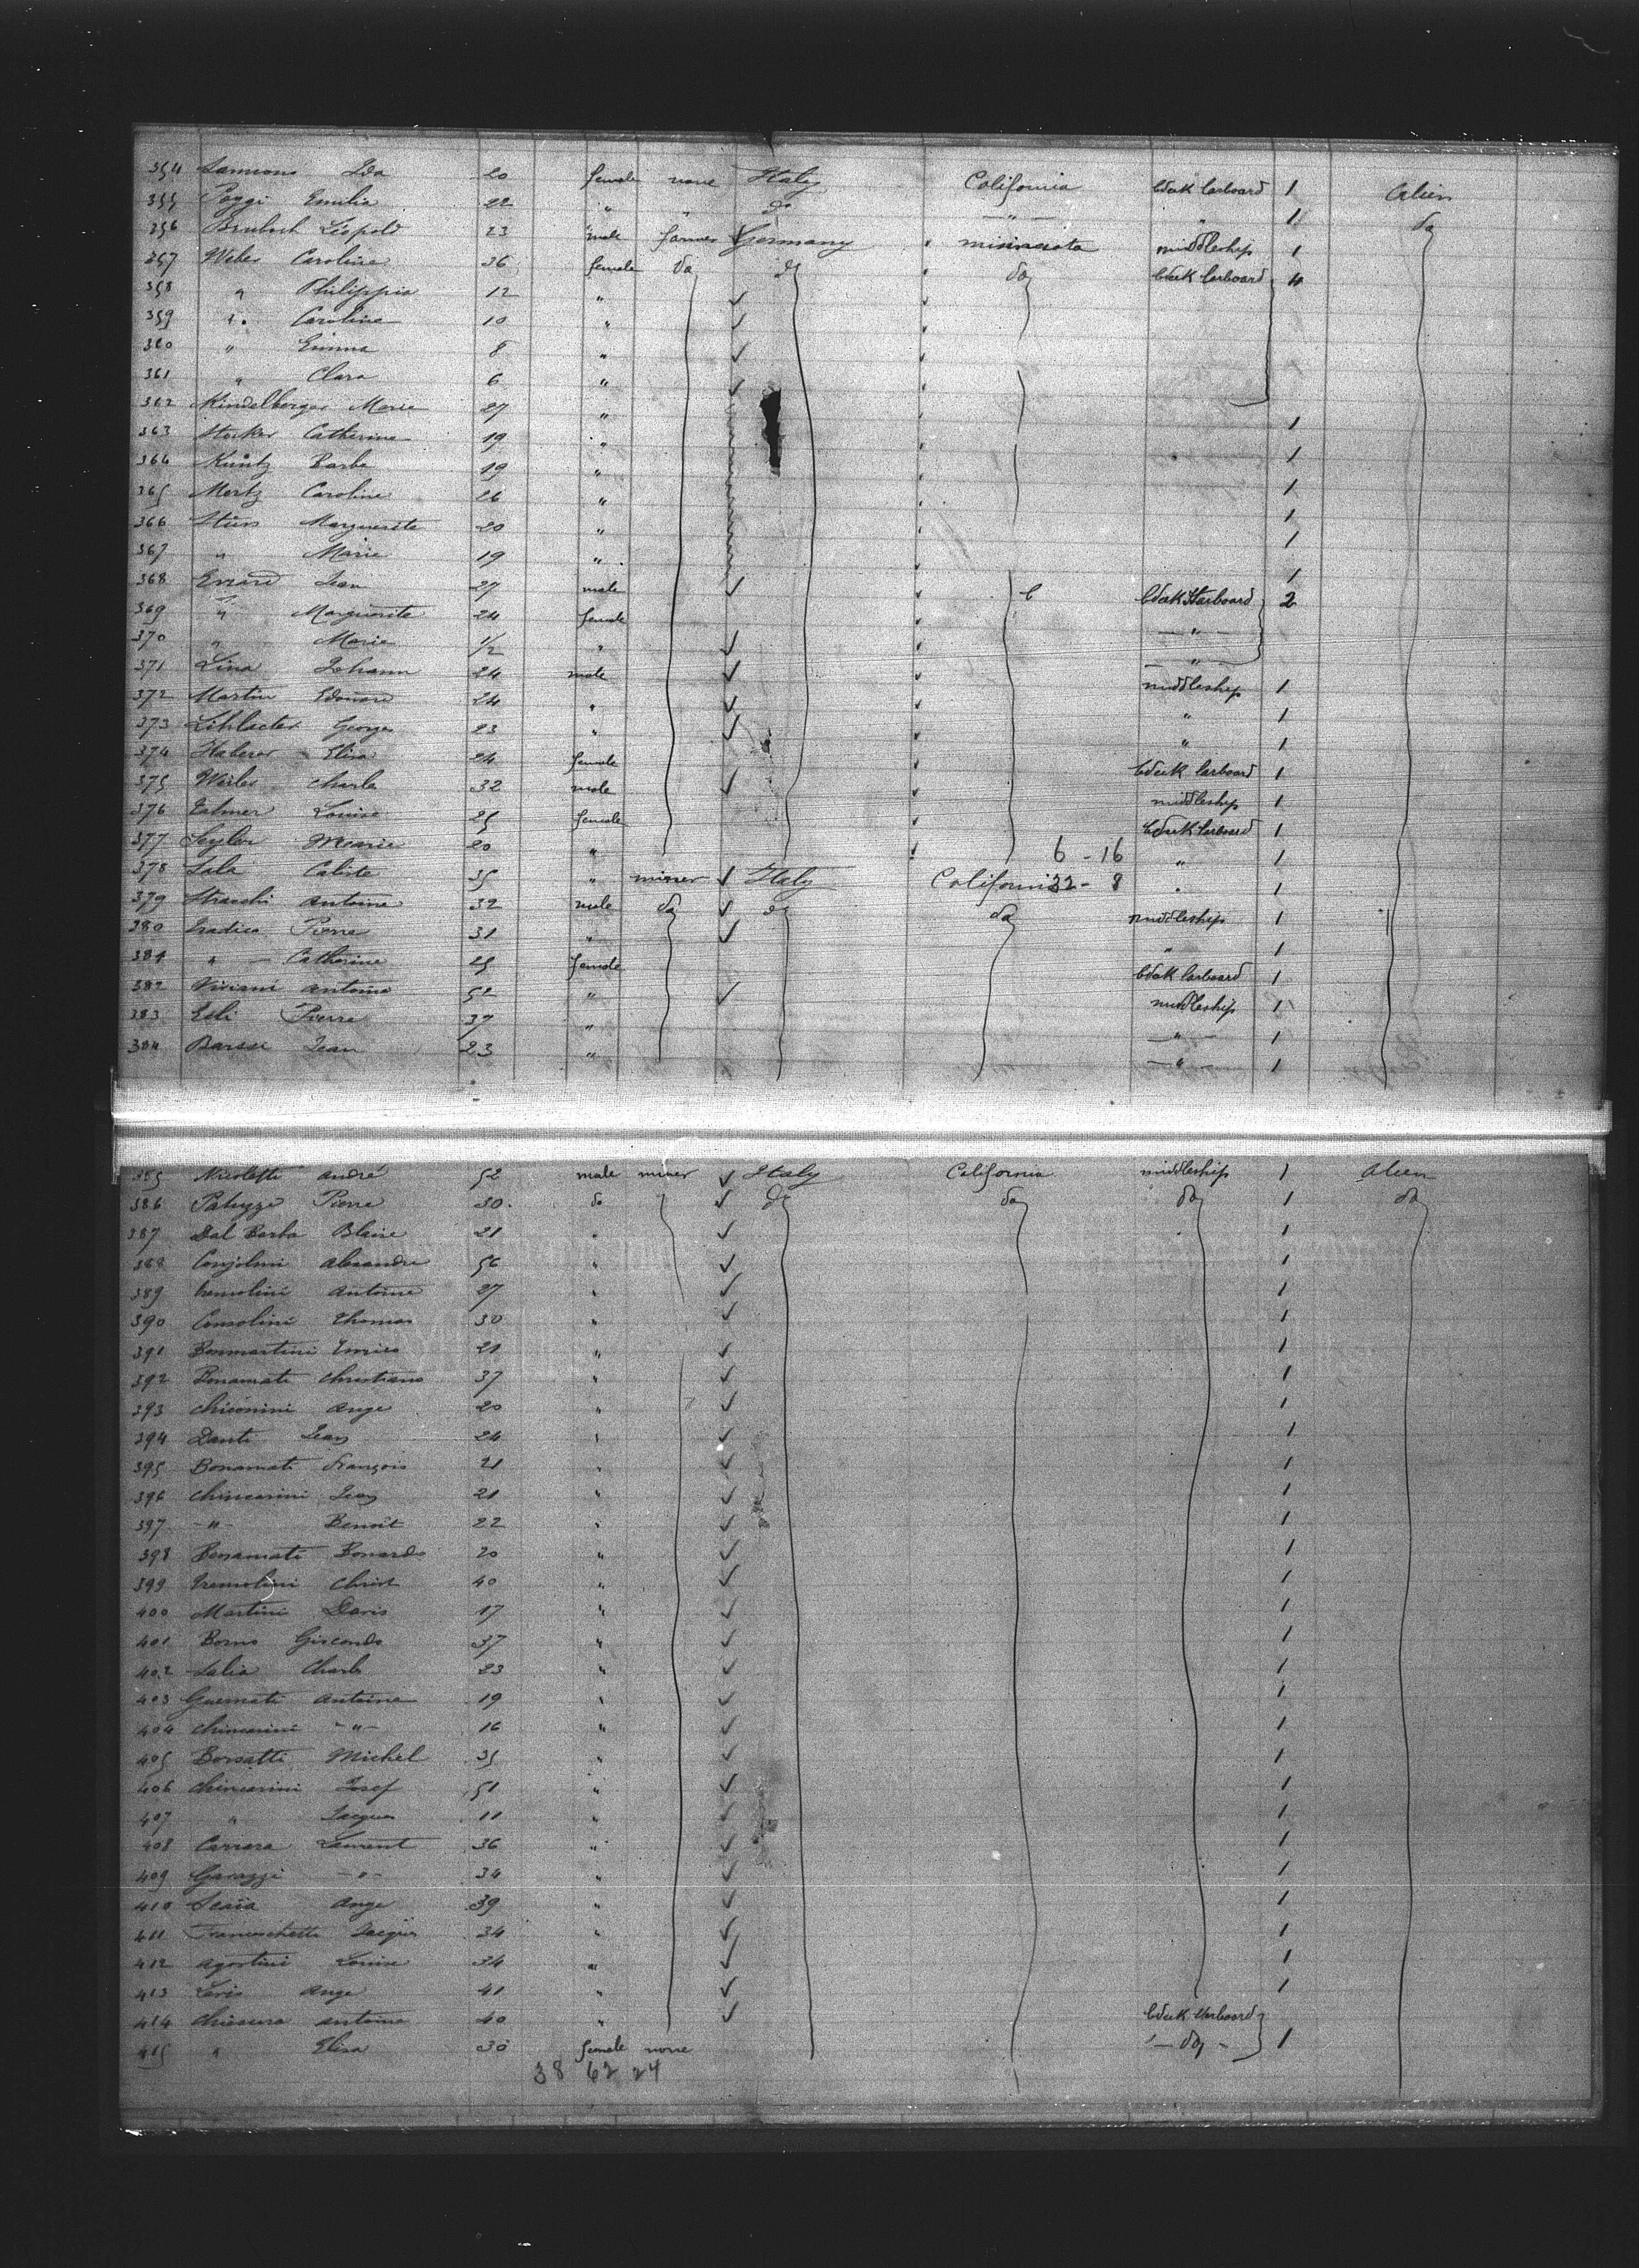 354 Ida 20 female none Italy California bdeck larboard 1 Alien
355 Poggi Emilia 22 " " do — " — " 1 do
356 Leopold 23 male farmer Germany minnesota middleship 1
357 Weber Caroline 36 female do do do bdeck larboard 4
358 " Philippia 12 "
359 " Caroline 10 "
360 " Emma 8 "
361 " Clara 6 "
362 Kindelberger Marie 27 " 1
363 Stocker Catherine 19 " 1
364 Kuntz Barbe 19 " 1
365 Mertz Caroline 26 " 1
366 Marguerite 20 " 1
367 " Marie 19 " 1
368 Evrard Jean 27 male bdeck Starboard 2
369 " Marguerite 24 female — " —
370 " Marie 1/2 " — " —
371 Lina Johann 24 male middleship 1
372 Martin Edouard 24 " " 1
373 George 23 " " 1
374 Haberer Elisa 24 female bdeck larboard 1
375 Charles 32 male middleship 1
376 Louise 25 female bdeck larboard 1
377 Seyler Mearie 20 " 6 - 16 " 1
378 Calixte 35 " miner Italy California 32 - 8 " 1
379 Antoine 32 male do do do middleship 1
380 Pierre 31 " " 1
381 " — Catherine 25 female bdeck larboard 1
382 Viviani Antoine 52 " middleship 1
383 Pierre 37 " — " — 1
384 Barsse Jean 23 " — " — 1
385 Nicoletti André 52 male miner Italy California middleship 1 Alien
386 Pierre 30 do do do do 1 do
387 Dal Barba Blaise 21 " 1
388 Alexandre 56 " 1
389 Antoine 27 " 1
390 Consolini Thomas 30 " 1
391 Bonmartini Enrico 21 " 1
392 Bonamati Christiano 37 " 1
393 Ange 20 " 1
394 Danti Jean 24 " 1
395 Bonamati François 21 " 1
396 Chincarini Jean 21 " 1
397 — " — Benoît 22 " 1
398 Bonamati 20 " 1
399 Tremolini Christ 40 " 1
400 Martini Davis 17 " 1
401 Giocondo 37 " 1
402 Charles 23 " 1
403 Antoine 19 " 1
404 Chincarini — " — 16 " 1
405 Borsatti Michel 35 " 1
406 Chincarini Josef 51 " 1
407 " Jacques 11 " 1
408 Carrara Laurent 36 " 1
409 — " — 34 " 1
410 Ange 39 " 1
411 Franceschetti Jacques 34 " 1
412 Agostini Louise 34 " 1
413 Ange 41 " 1
414 Antoine 40 " bdeck larboard
415 " Elisa 30 female none — do — 1
38 62 24